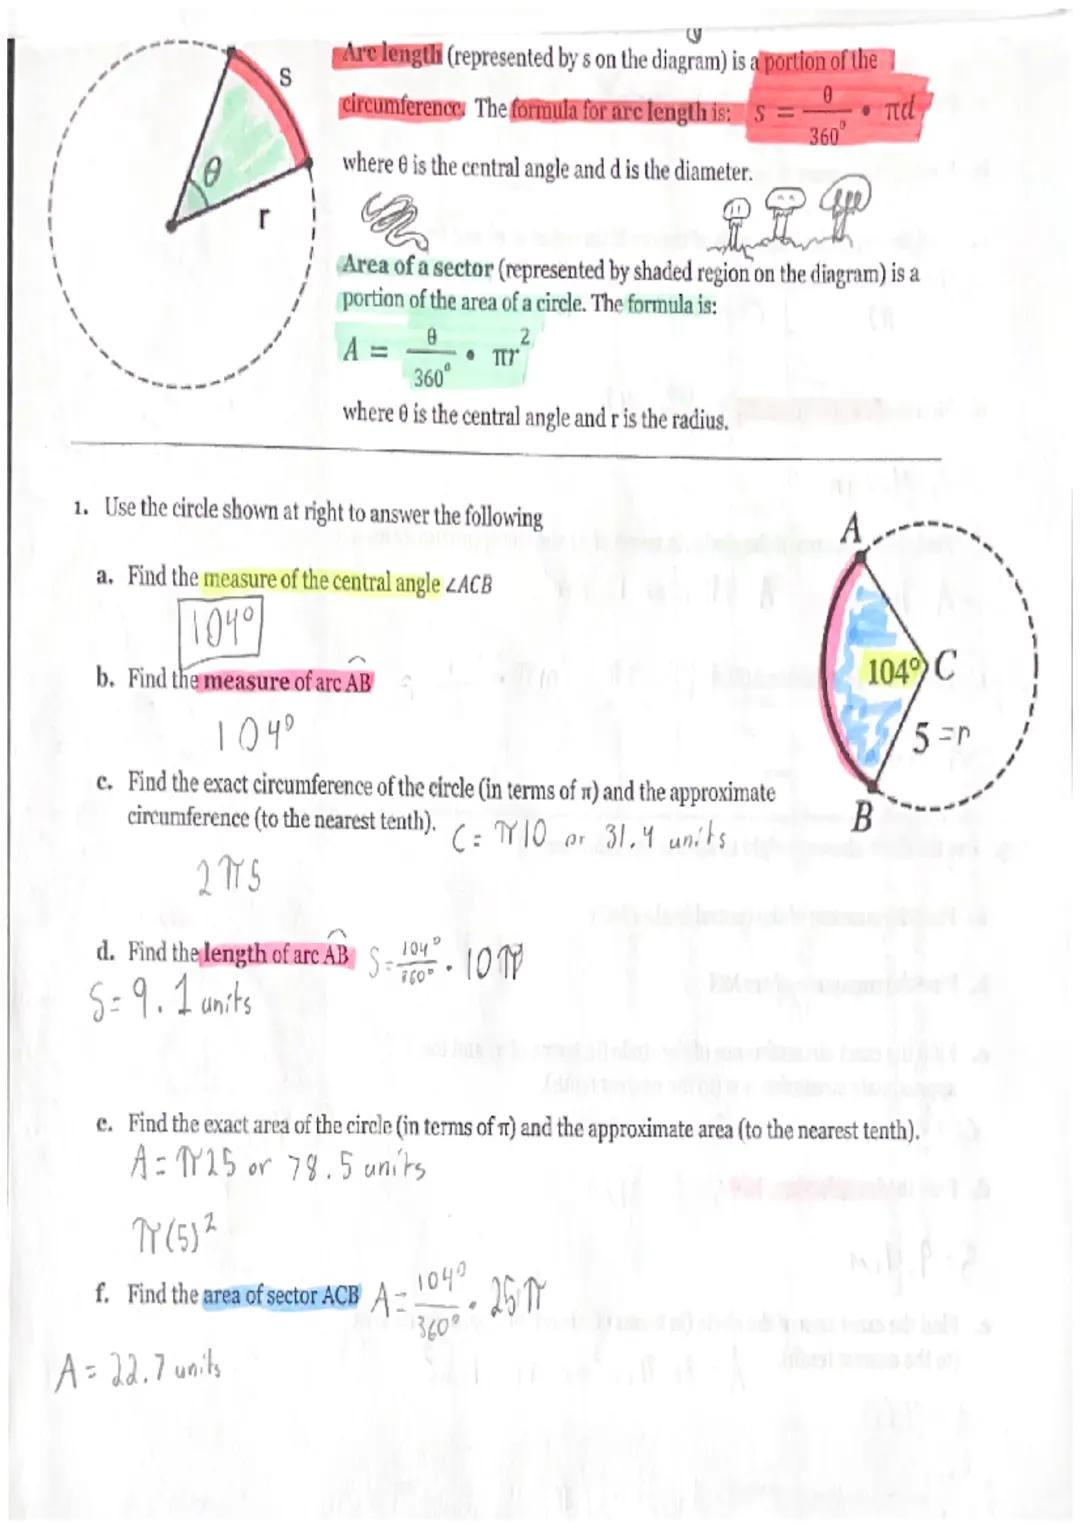 Arc length (represented by s on the diagram) is a portion of the
circumference. The formula for arc length is: s = θ/360° • πd
where θ is the central angle and d is the diameter.
S
θ
r
Area of a sector (represented by shaded region on the diagram) is a
portion of the area of a circle. The formula is:
A = θ/360° • πr²
where θ is the central angle and r is the radius.
1. Use the circle shown at right to answer the following
a. Find the measure of the central angle ∠ACB
104°
b. Find the measure of arc AB
104°
A
104° C
5 = r
B
c. Find the exact circumference of the circle (in terms of π) and the approximate
circumference (to the nearest tenth). C = π10 or 31.4 units
2π5
d. Find the length of arc AB S = 104°/360° • 10π
S = 9.1 units
e. Find the exact area of the circle (in terms of π) and the approximate area (to the nearest tenth).
A = π25 or 78.5 units
π(5)²
f. Find the area of sector ACB A = 104°/360° • 25π
A = 22.7 units